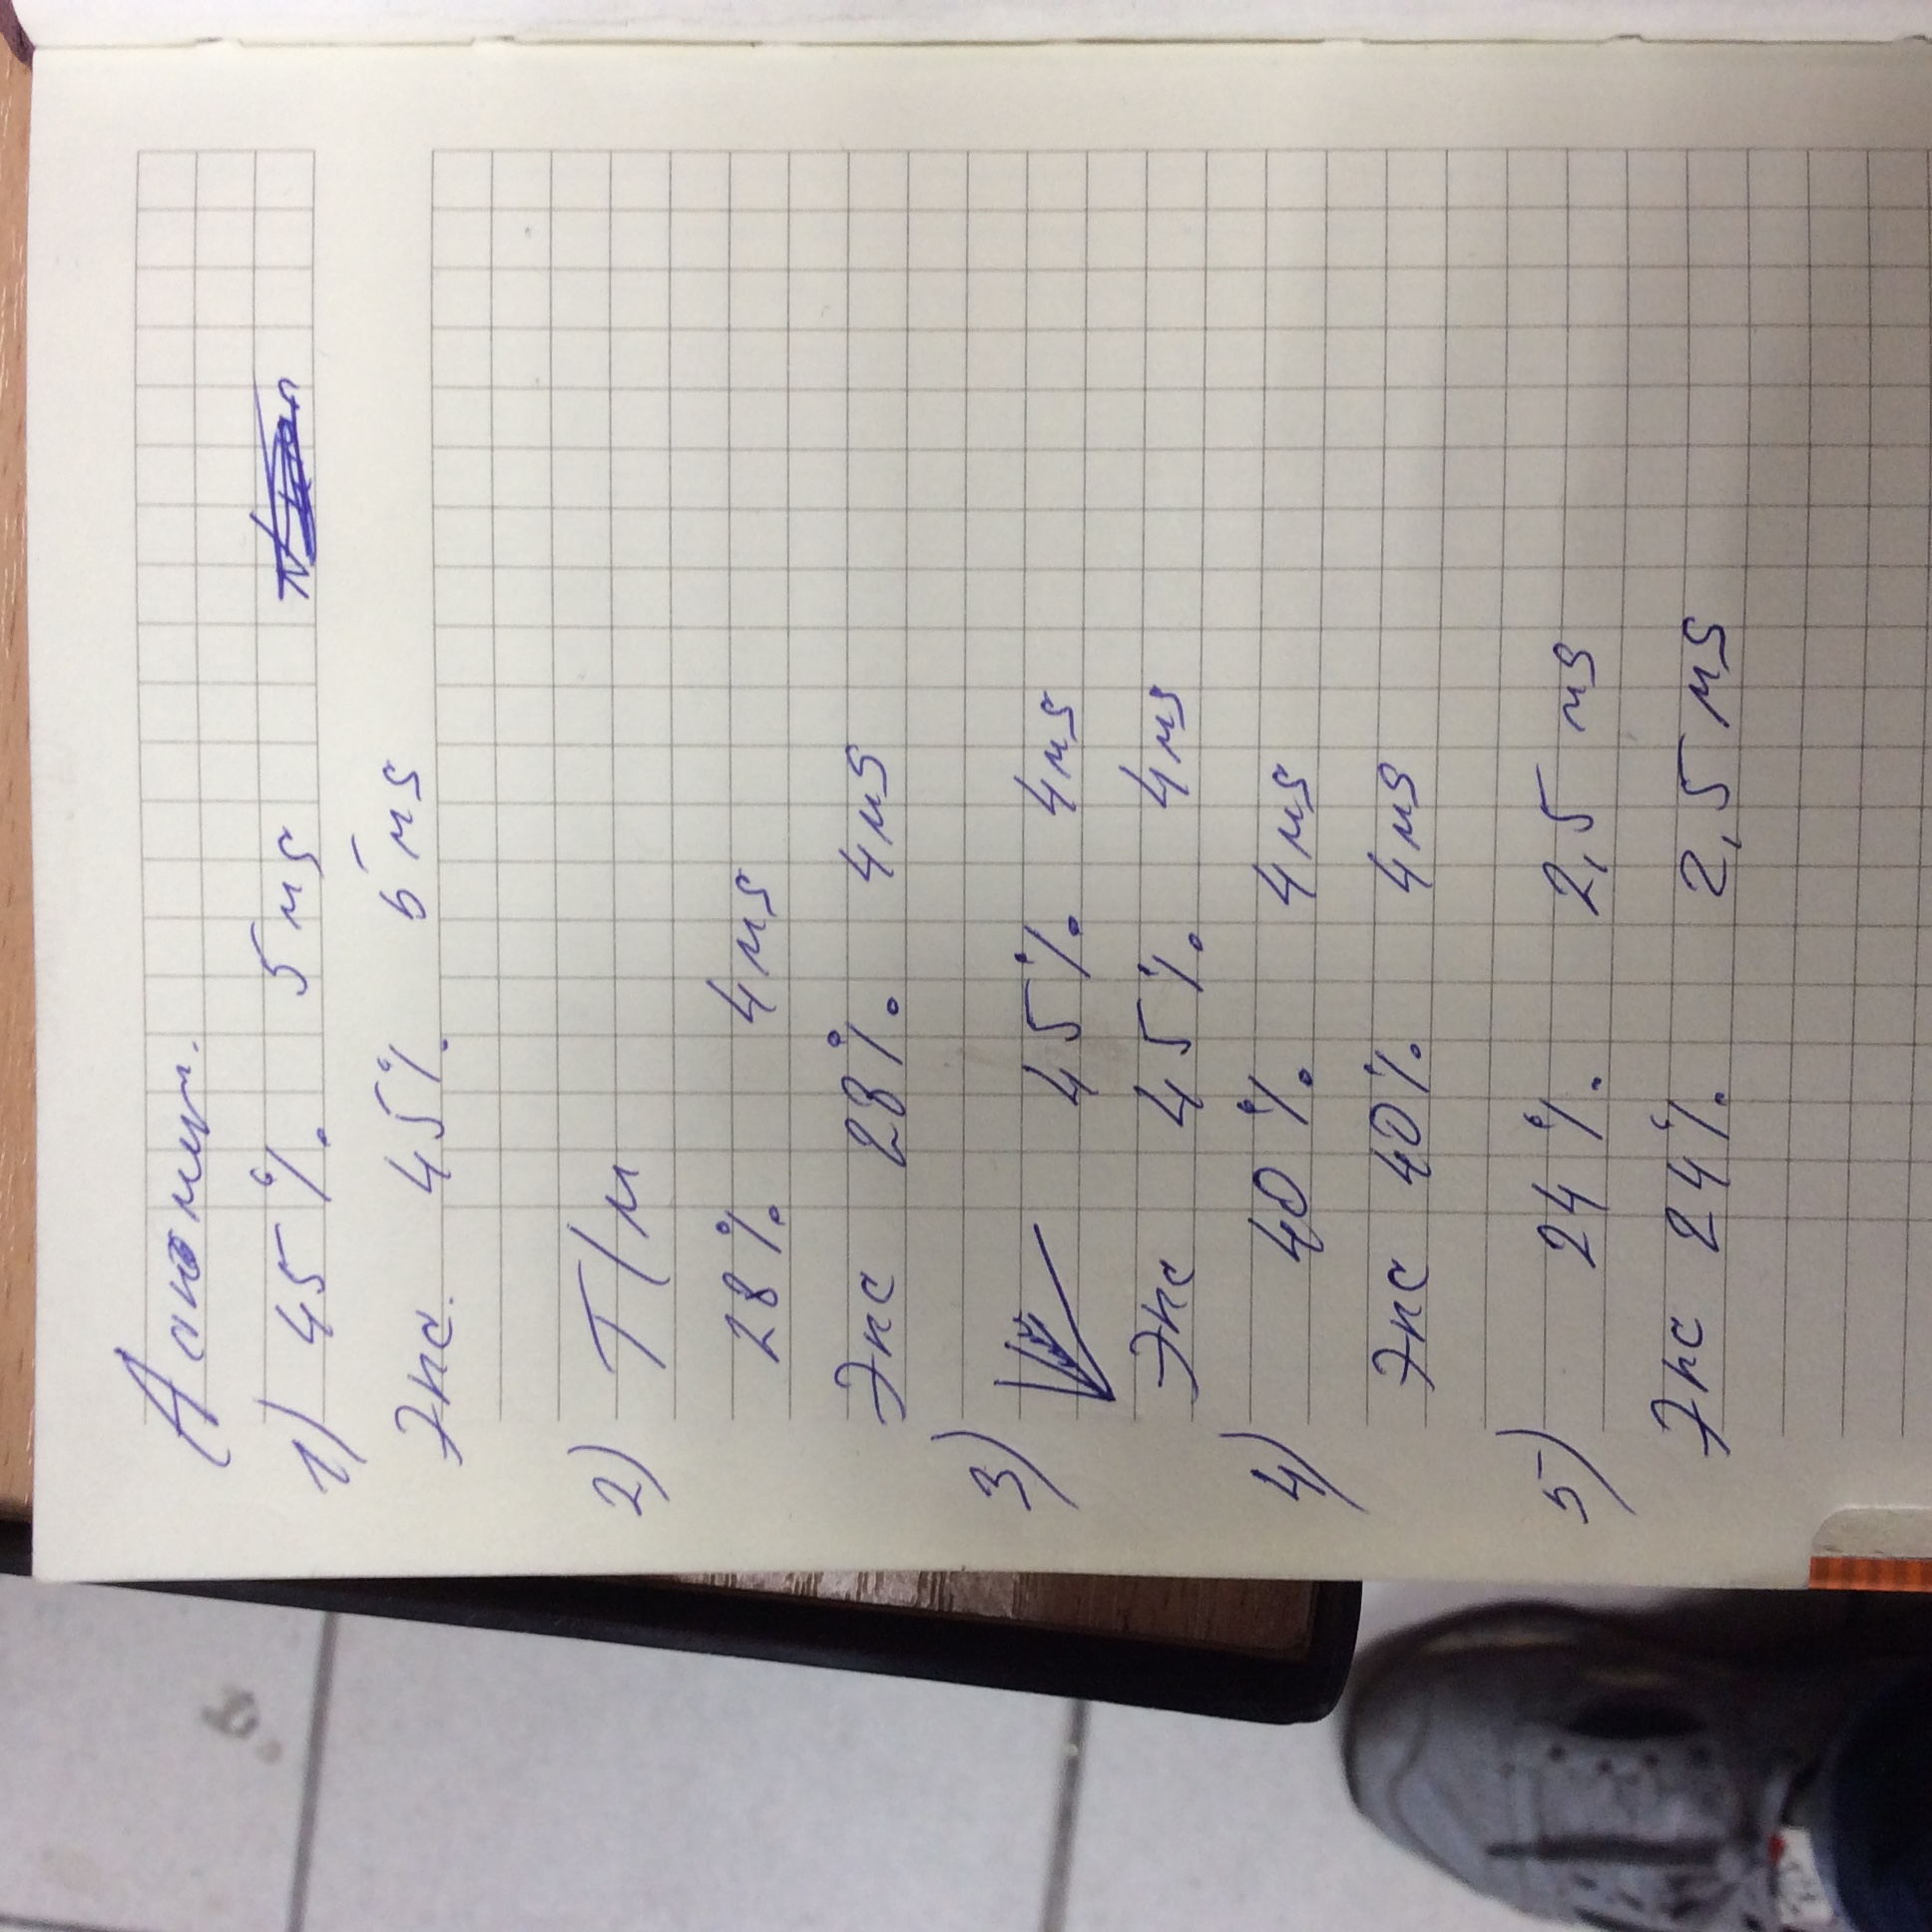 1) 45% 5 ms
Экс. 45% 5 ms
2) T/м
28% 4 ms
Экс 28% 4 ms
3) 45% 4 ms
Экс 45% 4 ms
4) 40% 4 ms
Экс 40% 4 ms
5) 24% 2,5 ms
Экс 24% 2,5 ms